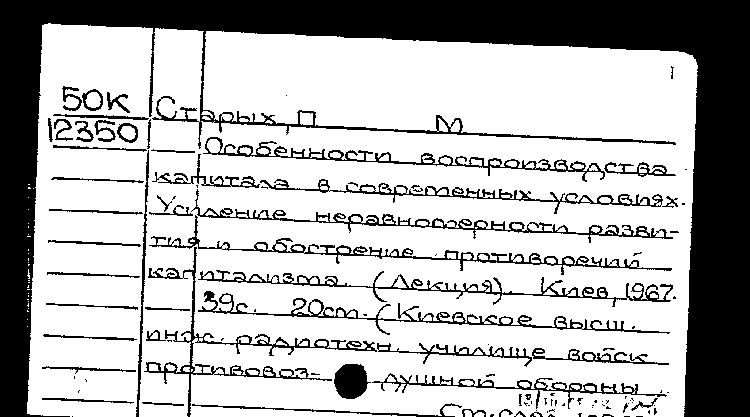 1
50К
12350
Старых, П М
Особенности воспроизводства
капитала в современных условиях.
Усиление неравномерности разви-
тия и обострение противоречий
капитализма. (Лекция). Киев, 1967.
39с. 20cm. (Киевское высш.
инж. радиотехн. училище войск
противовоз- душной обороны
См. след.